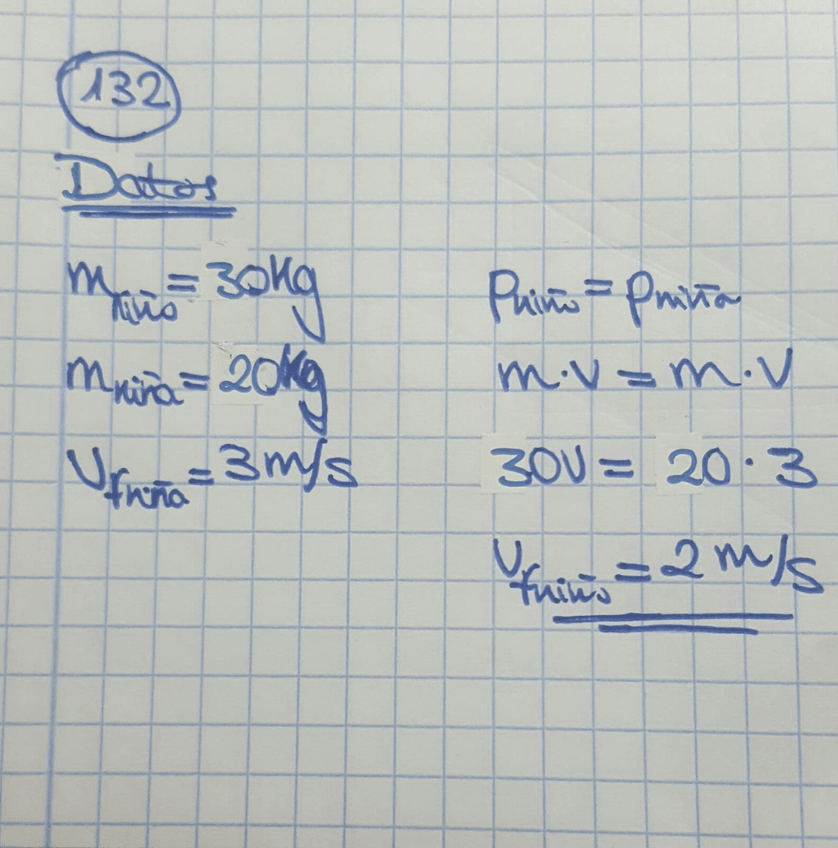 132
Datos
mniño = 30Kg
mniña = 20Kg
vfniña = 3m/s
pniño = pniña
m·v = m·v
30v = 20·3
vfniño = 2m/s